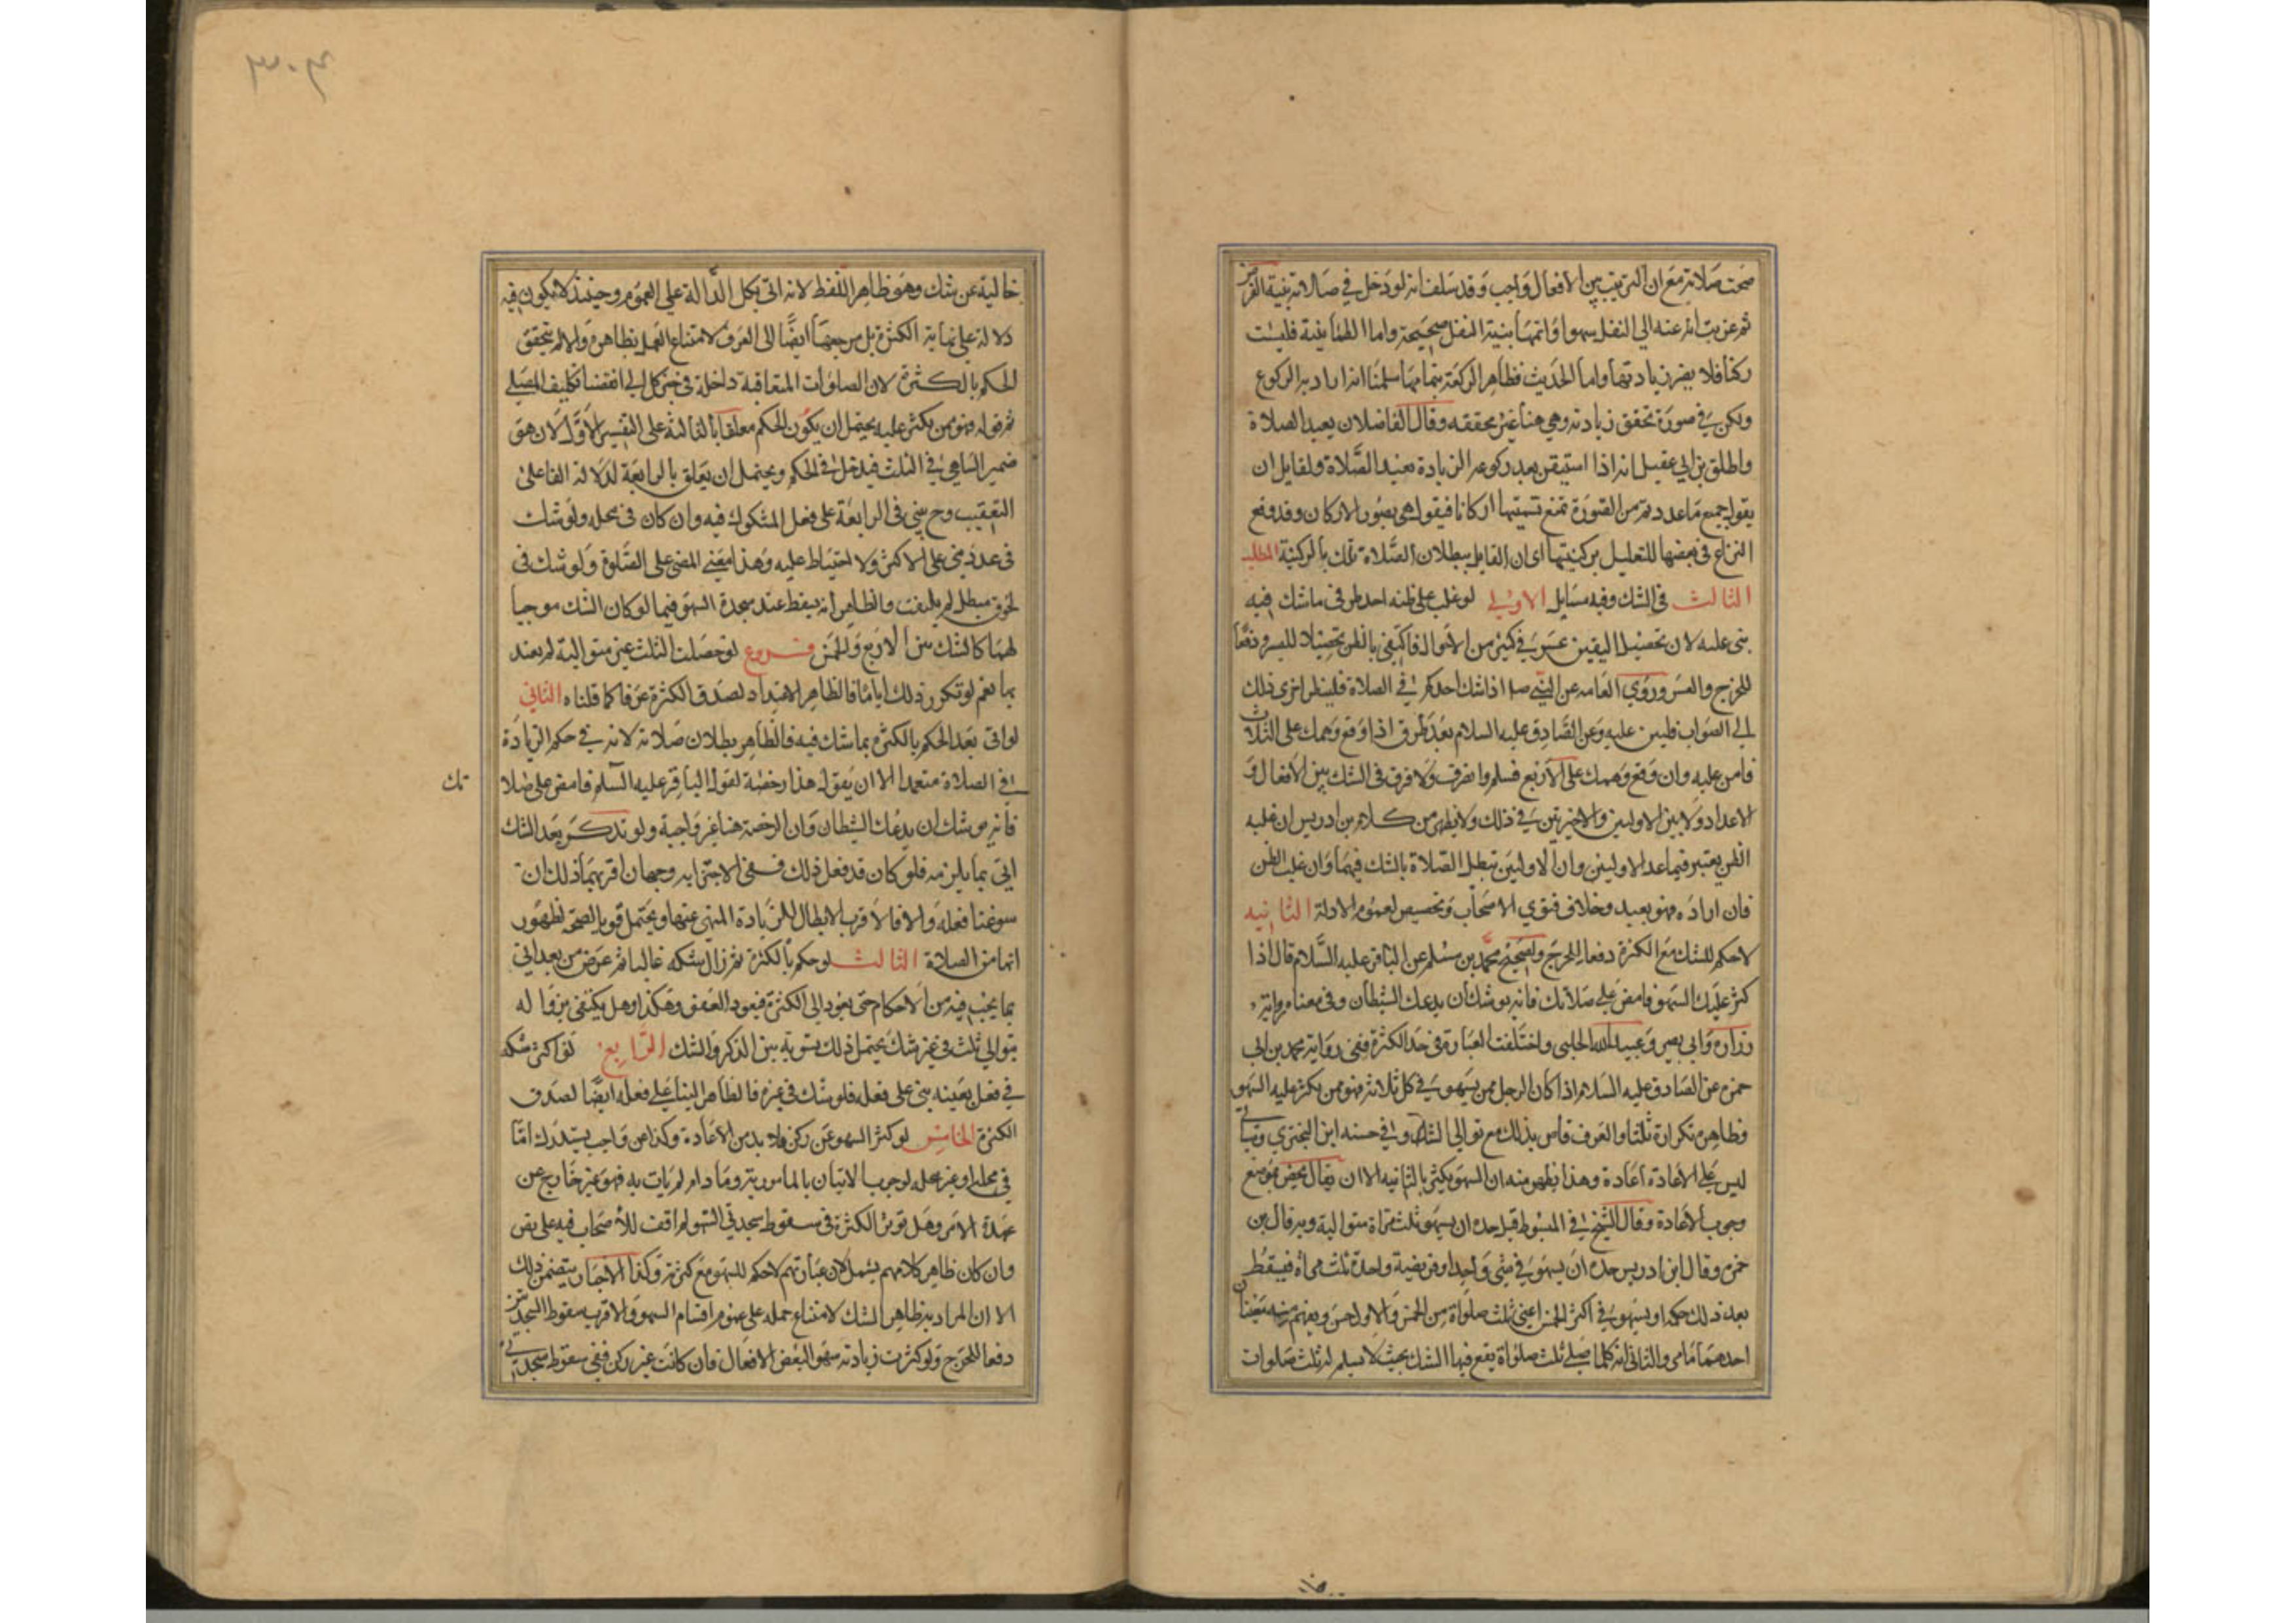 صحت صلاته مع ان الترتيب بين الافعال واجب وقد سلف انه لو دخل في صلاته بنية الفرض
ثم عزبت انه عنه الى النفل سهوا واتمها بنية النفل صحيحة واما الطمانينة فليست
ركنا فلا يضر زيادتها واما الحديث فظاهر الركعة بتمامها سلمنا انه اراد به الركوع
ولكن في صورة تحقق زيادته وهي هنا غير محققه وقال الفاضلان يعيد الصلاة
واطلق بن ابي عقيل انه اذا استيقن بعد ركوعه الزيادة يعيد الصلاة ولقايل ان
يقول جميع ما عددتم من الصورة تمنع تسميتها اركانا فيقول هي بصور الاركان وقد وقع
النزاع في بعضها للتعليل بركنيتها اي ان القايل ببطلان الصلاة تمسك بالركنية المطلب
الثالث في الشك وفيه مسايل الاولى لو غلب على ظنه احد طرفي ما شك فيه
بنى عليه لان تحصيل اليقين عسر في كثير من الاحوال فاكتفى بالظن تحصيلا لليسر ودفعا
للحرج والعسر وروى العامه عن النبي صلا اذا شك احدكم في الصلاة فلينظر احرى ذلك
الى الصواب فليبن عليه وعن الصادق عليه السلام بعد طرق اذا وقع وهمك على الثلاث
فابن عليه وان وقع وهمك على الاربع فسلم وانصرف ولا فرق في الشك بين الافعال و
الاعداد ولا بين الاوليين والاخيرتين في ذلك ولا يظهر من كلام بن ادريس ان غلبه
الظن يعتبر فيما عدا الاوليين وان الاوليين تبطل الصلاة بالشك فيهما وان غلب الظن
فان اراده فهو بعيد وخلاف فتوى الاصحاب وتخصيص لعموم الادلة الثانيه
لا حكم للشك مع الكثرة دفعا للحرج ولصحيحة محمد بن مسلم عن الباقر عليه السلام قال اذا
كثر عليك السهو فامض على صلاتك فانه يوشك ان يدعك الشيطان وفي معناه رواية
زرارة وابي بصير وعبيد الله الحلبي واختلفت العبارة في حد الكثرة ففي رواية محمد بن ابي
حمزه عن الصادق عليه السلام اذا كان الرجل ممن يسهو في كل ثلاثه فهو ممن يكثر عليه السهو
وظاهره تكراره ثلثا والعرف قاض بذلك مع توالي الشك وفي حسنه ابن البختري
ليس على الاعادة اعادة وهذا يظهر منه ان السهو يكثر بالثانيه الا ان يقال يختص بموضع
وجوب الاعادة وقال الشيخ في المبسوط قيل حده ان يسهو ثلث مرات متوالية وبه قال بن
حمزه وقال ابن ادريس حده ان يسهو في شيء واحد او فريضة واحدة ثلث مراة فيسقط
بعد ذلك حكمه او يسهو في اكثر الخمس اعني ثلث صلواة من الخمس والاول حسن ويفهم منه معنيان
احدهما ما مر والثاني انه كلما صلى ثلث صلواة يقع فيها الشك بحيث لا يسلم له ثلث صلوات
٣٠٣
خالية عن شك وهو ظاهر اللفظ لانه اتى بكل الدالة على العموم وحينئذ لا يكون فيه
دلالة على نهاية الكثرة بل مرجعها ايضا الى العرف لامتناع العمل بظاهره والا لم يتحقق
الحكم بالكثرة لان الصلوات المتعاقبة داخلة في حيز كل الى انقضا تكليف المصلي
ثم قوله فهو ممن يكثر عليه يحتمل ان يكون الحكم معلقا بالثالثة على التفسير الاول لان هو
ضمير الساهي في الثلث فيدخل في الحكم ويحتمل ان يتعلق بالرابعة لدلالة الفا على
التعقيب وح يبني في الرابعة على فعل المشكوك فيه وان كان في محله ولو شك
في عدد بنى على الاكثر ولا احتياط عليه وهذا معنى المضي على الصلوة ولو شك في
لحوق مبطل لم يلتفت والظاهر انه يسقط عنه سجدة السهو فيما لو كان الشك موجبا
لهما كالشك بين الاربع والخمس فروع لو حصلت الثلث غير متوالية لم يعتد
بها نعم لو تكرر ذلك اياما فالظاهر الاعتداد لصدق الكثرة عرفا كما قلناه الثاني
لو اتى بعد الحكم بالكثرة بما شك فيه فالظاهر بطلان صلاته لانه في حكم الزيادة
في الصلاة متعمدا الا ان يقول هذا رخصة لقول الباقر عليه السلم فامض على صلا
تك
فانه يوشك ان يدعك الشيطان وان الرخصة هنا غير واجبة ولو تذكر بعد الشك
اتى بما يلزمه فلو كان قد فعل ذلك ففي الاجتزا به وجهان اقربهما ذلك ان
سوغنا فعله والا فالاقرب الابطال للزيادة المنهي عنها ويحتمل قويا الصحة لظهور
انها من الصلاة الثالث لو حكم بالكثرة ثم زال شكه غالبا ثم عرض من بعد اتى
بما يجب فيه من الاحكام حتى يعود الى الكثرة فيعود العفو وهكذا وهل يكتفى بزواله
بتوالي ثلث في غير شك يحتمل ذلك تسوية بين الذكر والشك الرابع لو اكثر شكه
في فعل بعينه بنى على فعله فلو شك في غيره فالظاهر البنا على فعله ايضا لصدق
الكثرة الخامس لو كثر السهو عن ركن فلا بد من الاعادة وكذا عن واجب يستدرك اما
في محله او غير محله لوجوب الاتيان بالمامور به وما دام لم يات به فهو غير خارج عن
عهدة الامر وهل توثر الكثرة في سقوط سجدتي السهو لم اقف للاصحاب فيه على نص
وان كان ظاهر كلامهم يشمل لان عبارتهم لا حكم للسهو مع كثرته وكذا الاخبار يتضمن ذلك
الا ان المراد به ظاهر الشك لامتناع حمله على عموم اقسام السهو والاقرب سقوط السجدتين
دفعا للحرج ولو كثرت زيادته سهوا لبعض الافعال فان كانت غير ركن ففي سقوط سجدتي